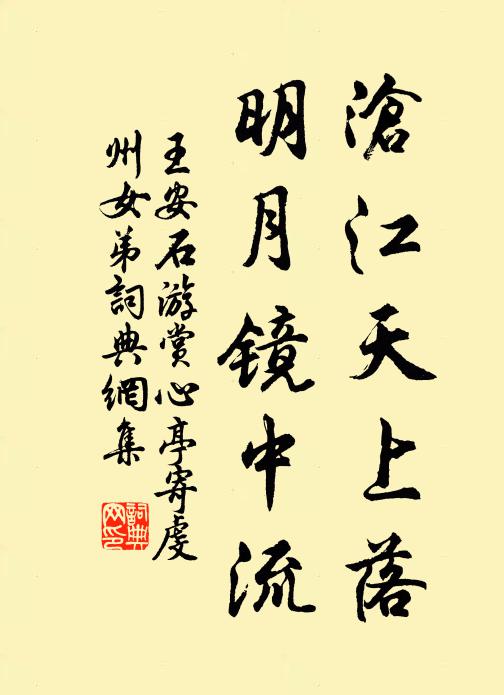 滄江天上落
明月镜中流
王安石游赏心亭寄虔
州女弟詞典網集
詞典
网印